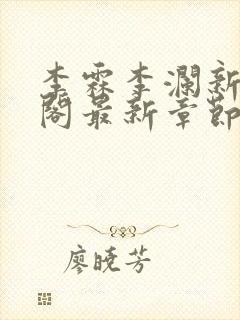 李霖李澜新
阁最新章节
廖晓芳